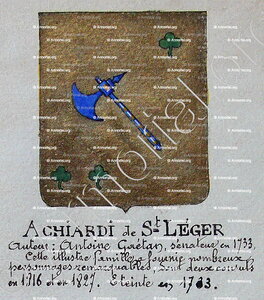 ACHIARDI de St. LÉGER
Auteur : Antoine Gaëtan, sénateur en 1733.
Cette illustre famille a fourni nombreux
personnages remarquables, dont deux consuls
en 1716 et en 1827. Éteinte en